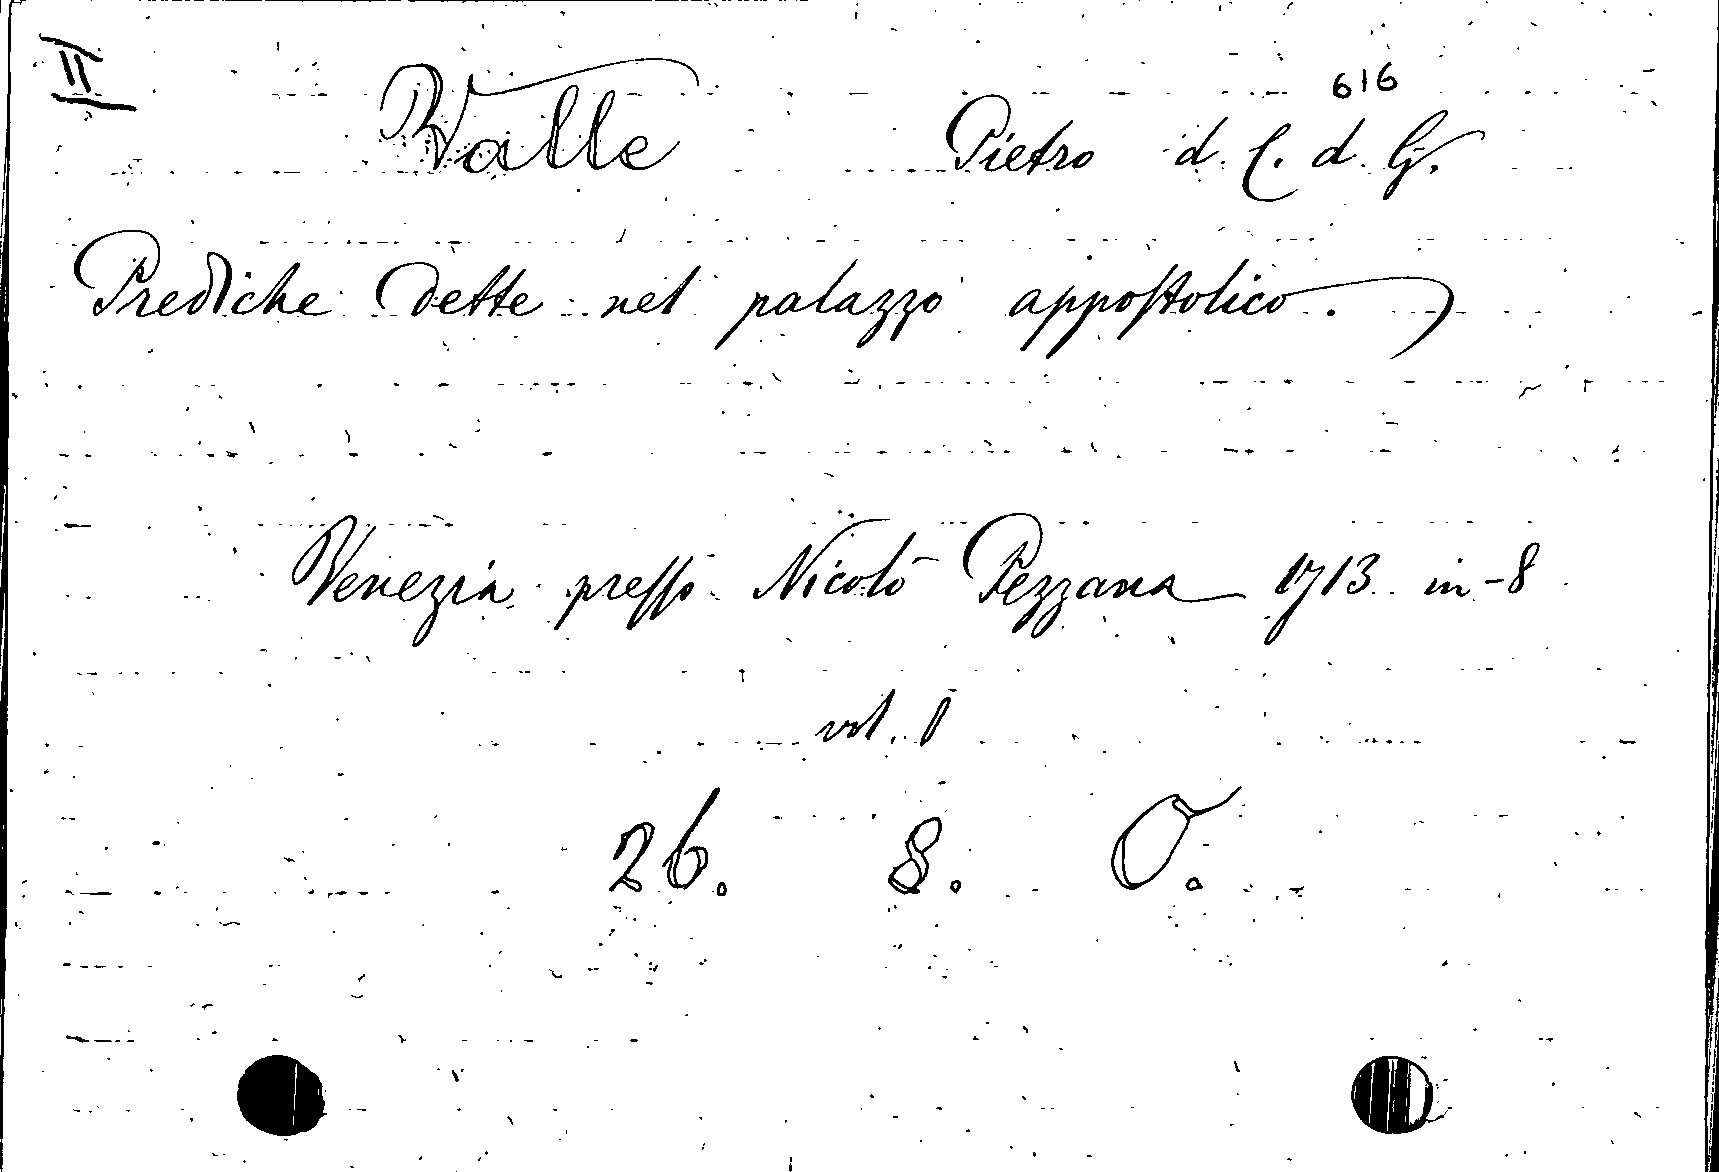 II
616
Valle Pietro d. C. d. G.
Prediche dette nel palazzo appostolico.
Venezia presso Nicolò Pezzana 1713 in-8
vol. 1
26. 8. O.